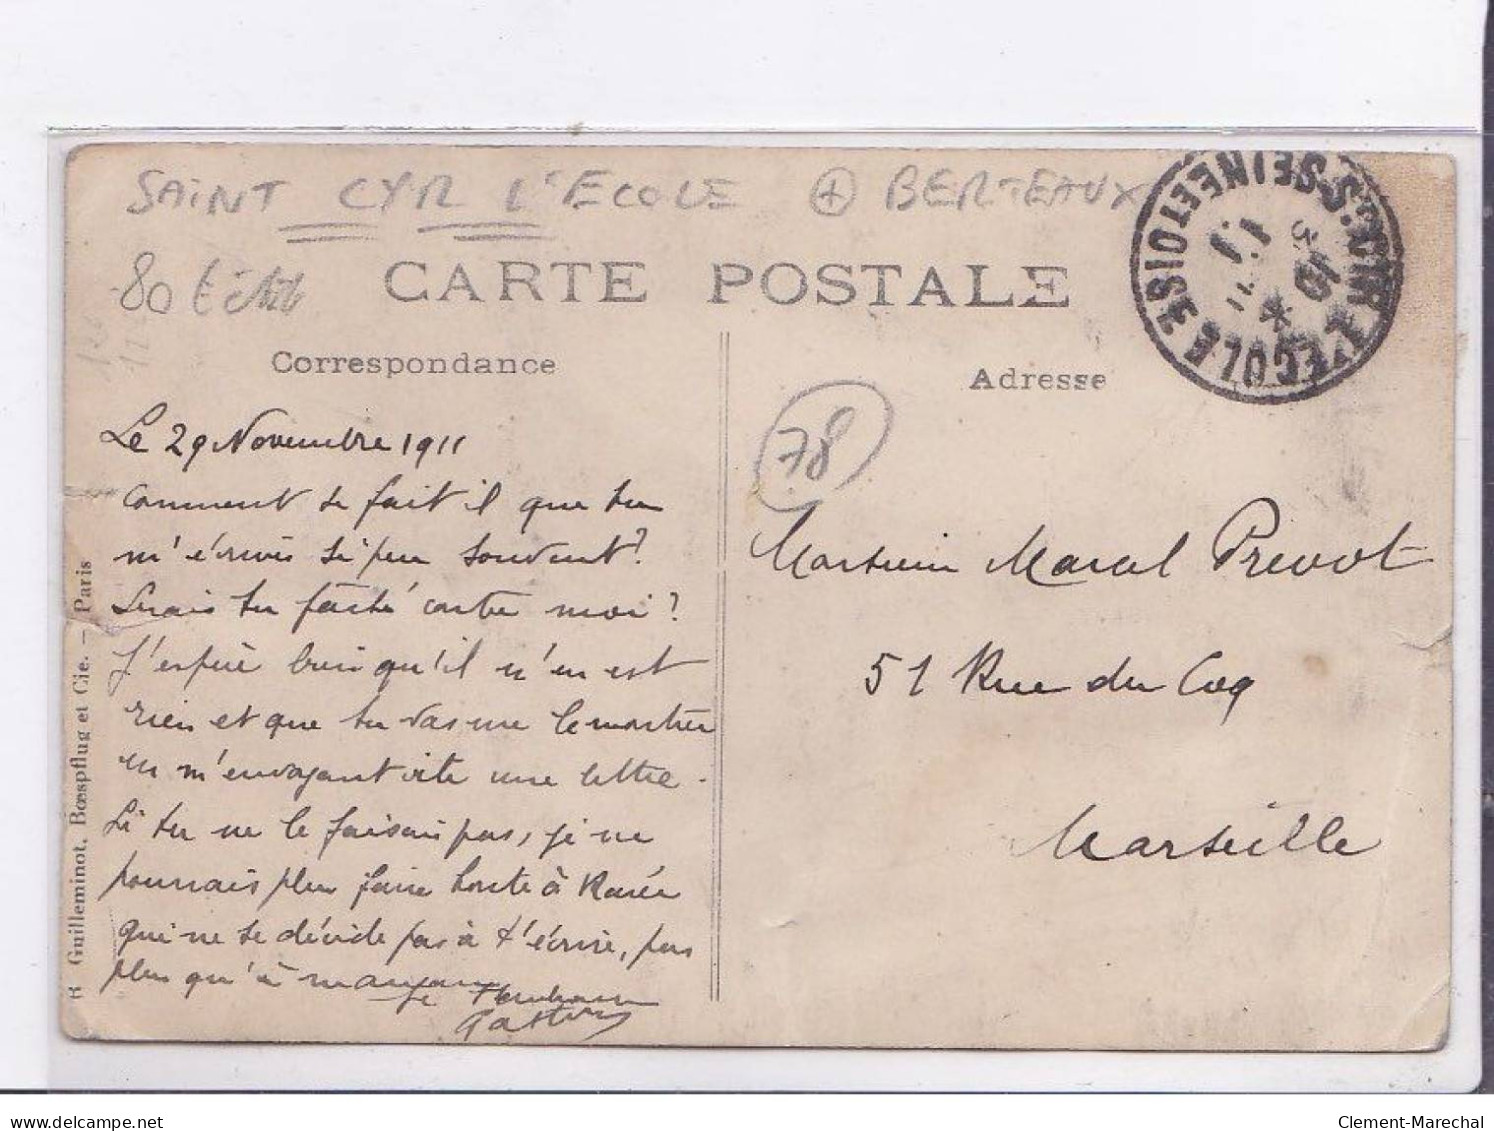 SAINT CYR L'ECOLE + BERTEAUX
80
CARTE POSTALE
Correspondance
Adresse
ST CYR L'ECOLE SEINE ET OISE
78
Le 29 Novembre 1911
Comment se fait il que tu
m'écrives si peu souvent?
Serais tu fâché contre moi?
J'espère bien qu'il n'en est
rien et que tu vas me le montrer
en m'envoyant vite une lettre.
Si tu ne le faisais pas, je ne
pourrais plus faire honte à Renée
qui ne se décide pas à t'écrire, pas
plus qu'à maman
Je
Gaston
Monsieur Marcel Prevot
51 Rue du Coq
Marseille
R Guilleminot, Bœspflug et Cie. — Paris
www.delcampe.net
Clement-Marechal